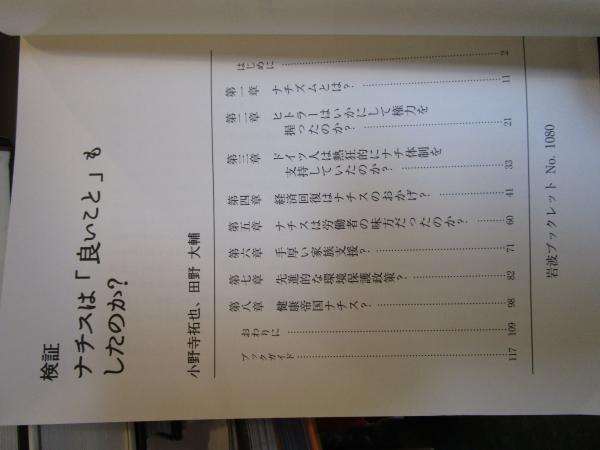 検証
ナチスは「良いこと」も
したのか?
小野寺拓也、田野 大輔
はじめに 2
第一章 ナチズムとは? 11
第二章 ヒトラーはいかにして権力を
握ったのか? 21
第三章 ドイツ人は熱狂的にナチ体制を
支持していたのか? 33
第四章 経済回復はナチスのおかげ? 41
第五章 ナチスは労働者の味方だったのか? 60
第六章 手厚い家族支援? 71
第七章 先進的な環境保護政策? 82
第八章 健康帝国ナチス? 98
おわりに 109
ブックガイド 117
岩波ブックレット No. 1080